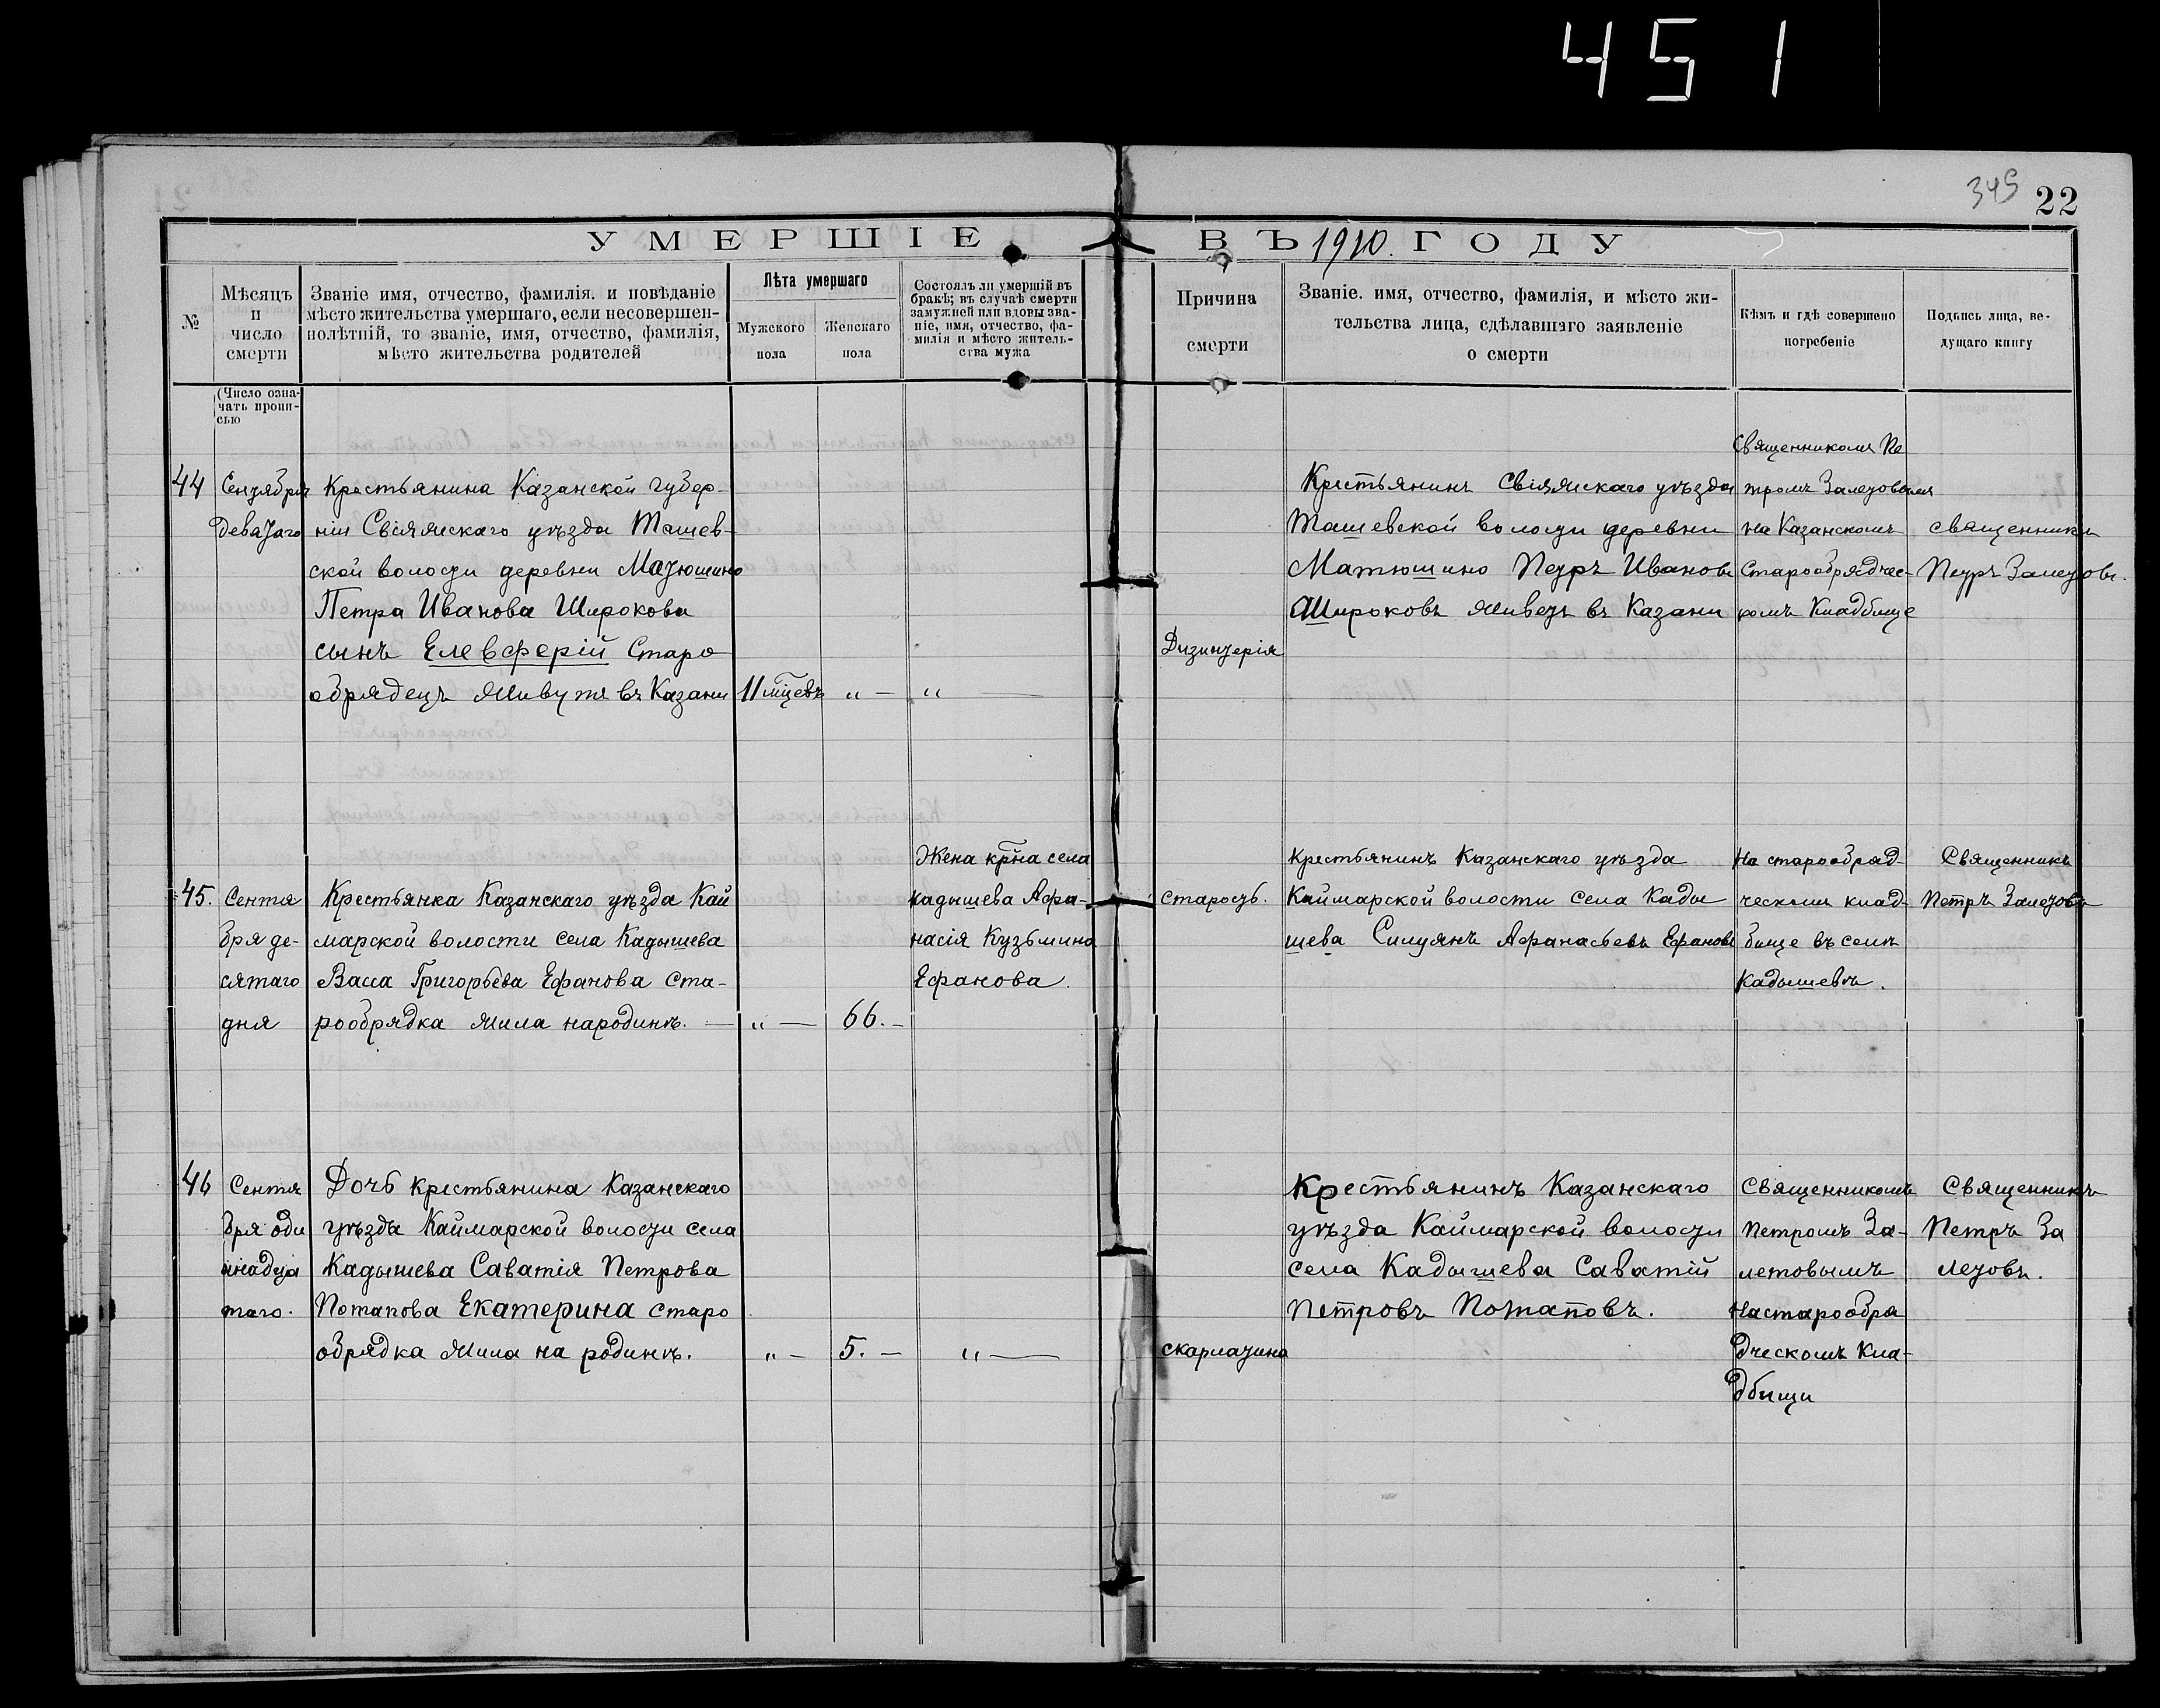 451
349
22
УМЕРШІЕ ВЪ 1910. ГОДУ
№
Мѣсяцъ
и
число
смерти
Званіе имя, отчество, фамилія. и повѣданіе
мѣсто жительства умершаго, если несовершен-
нолѣтній, то званіе, имя, отчество, фамилія,
мѣсто жительства родителей
Лѣта умершаго
Мужского
пола
Женскаго
пола
Состоялъ ли умершій въ
бракѣ; въ случаѣ смерти
замужней или вдовы зва-
ніе, имя, отчество, фа-
милія и мѣсто житель-
ства мужа
Причина
смерти
Званіе. имя, отчество, фамилія, и мѣсто жи-
тельства лица, сдѣлавшаго заявленіе
о смерти
Кѣмъ и гдѣ совершено
погребеніе
Подпись лица, ве-
дущаго книгу
(Число озна-
чать пропи-
сью
44
Сентября
деватаго
Крестьянина Казанской губер-
ніи Свіяжскаго уѣзда Ташев-
ской волости деревни Матюшино
Петра Иванова Широкова
сынъ Елевферій Старо
обрядецъ живутъ въ Казани
11 мцевъ
„ —
„ —
Дизинтерія
Крестьянинъ Свіяжскаго уѣзда
Ташевской волости деревни
Матюшино Петръ Ивановъ
Широковъ живетъ въ Казани
Священникомъ Пе
тромъ Залетовымъ
на Казанскомъ
Старообрядчес-
комъ Кладбище
священникъ
Петръ Залетовъ.
45.
Сентя
бря де-
сятаго
дня
Крестьянка Казанскаго уѣзда Кай
марской волости села Кадышева
Васса Григорьева Ефанова Ста-
рообрядка жила народинѣ. —
„ —
66. -
Жена крна села
кадышева Афа-
насія Кузьмина
Ефанова.
старость.
Крестьянинъ Казанскаго уѣзда
Каймарской волости села Кады
шева Силуянъ Афанасьевъ Ефановъ
На старообряд-
ческомъ клад-
бище въ селѣ
Кадышевѣ.
Священникъ
Петръ Залетовъ
46
Сентя
бря оди
надца
таго.
Дочь крестьянина Казанскаго
уѣзда Каймарской волости села
Кадышева Саватія Петрова
Потапова Екатерина старо
обрядка жила на родинѣ.
„ —
5. —
„ —
скарлатина
Крестьянинъ Казанскаго
уѣзда Каймарской волости
села Кадышева Саватій
Петровъ Потаповъ.
Священникомъ
Петромъ За-
летовымъ
На старообря
дческомъ Кла-
дбищи
Священникъ
Петръ За
летовъ.